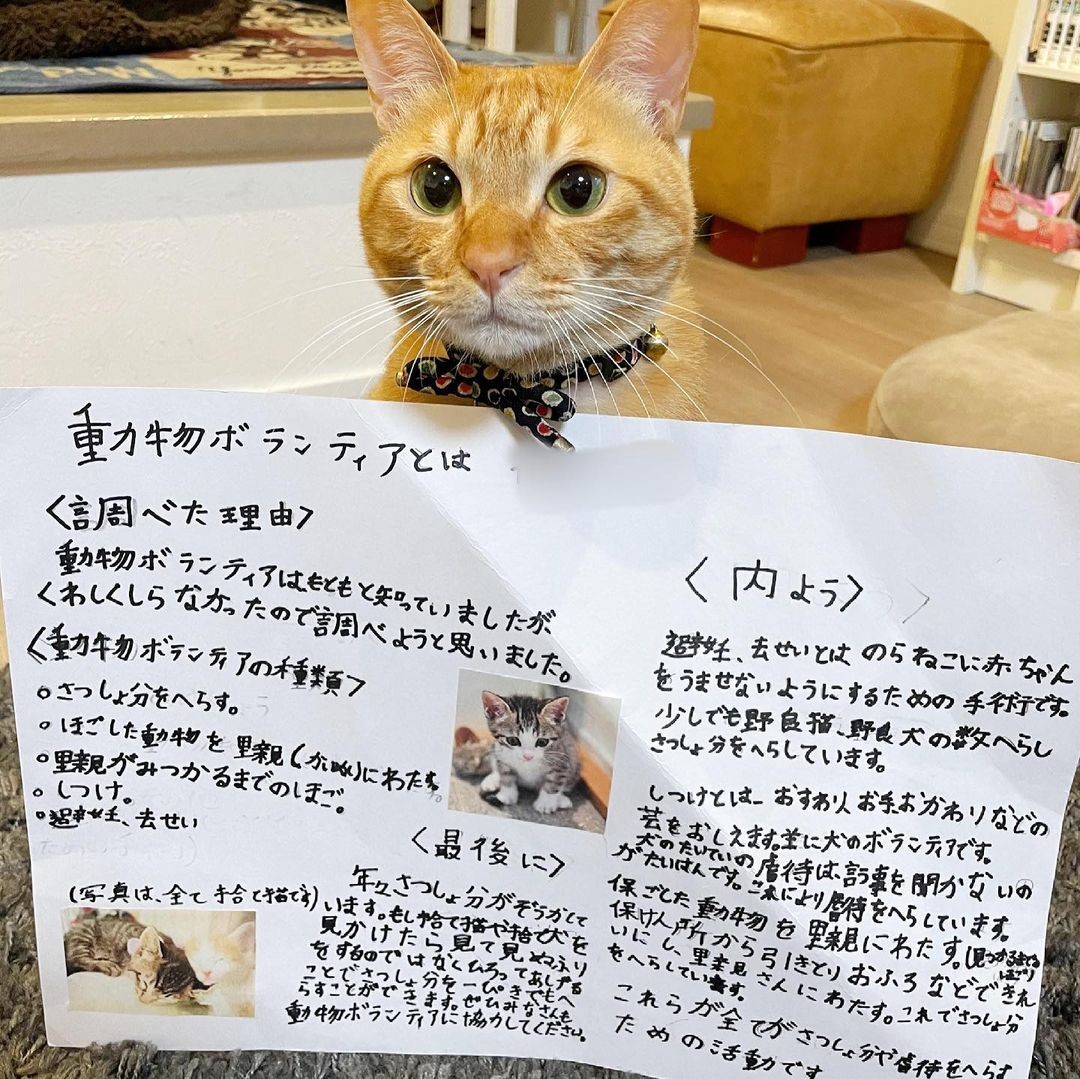 動物ボランティアとは
〈調べた理由〉
動物ボランティアは、もともと知っていましたが、
くわしくしらなかったので調べようと思いました。
〈動物ボランティアの種類〉
○さっしょ分をへらす。
○ほごした動物を里親(かい主)にわたす。
○里親がみつかるまでのほご。
○しつけ。
○避妊、去せい
(写真は、全て捨て猫です)
〈最後に〉
年々さっしょ分がぞうかして
います。もし捨て猫や捨て犬を
見かけたら見て見ぬふり
をするのではなくひろってあげる
ことでさっしょ分を一ぴきでもへ
らすことができます。ぜひみなさんも
動物ボランティアに協力してください。
〈内よう〉
避妊、去せいとは のらねこに赤ちゃん
をうませないようにするための手術です。
少しでも野良猫、野良犬の数へらし
さっしょ分をへらしています。
しつけとは、おすわり、お手、おかわりなどの
芸をおしえます。主に犬のボランティアです。
犬のたいていの虐待は、言う事を聞かないの
がたいはんです。これにより虐待をへらしています。
保ごした動物を里親にわたす。(見つかるまでほご)
保けん所から引きとりおふろなどできれ
いにし、里親さんにわたす。これでさっしょ分
をへらしています。
これらが全てがさっしょ分や虐待をへらす
ための活動です